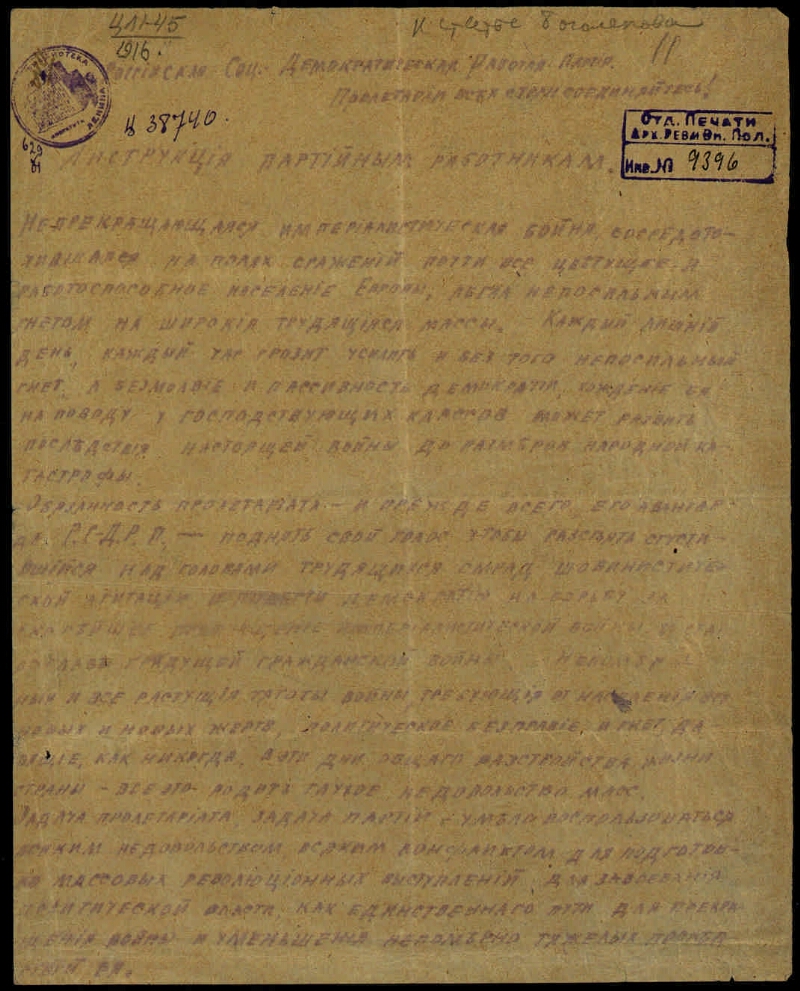 4Л1-45
1916.
К статье Боголепова
11
Российская Соц. Демократическая Рабоч. Парт.
Пролетарии всех стран соединяйтесь!
Ц 38740.
629
81
Отд. Печати
Арх. Рев. и Вн. Пол.
Инв. № 9396
Инструкція партійным работникам.
Непрекращающаяся имперіалистическая война, сосредото-
чившаяся на полях сраженій почти все цветущее и
работоспособное населеніе Европы, легла непосильным
гнетом на широкія трудящіяся массы. Каждый лишній
день, каждый час грозит усилить и без того непосильный
гнет, а безмолвіе и пассивность демократіи, хожденіе ея
на поводу у господствующих классов может развить
послѣдствія настоящей войны до размѣров народной ка-
тастрофы.
Обязанность пролетаріата – и прежде всего, его авангар-
да Р.С.Д.Р.П. — поднять свой голос, чтобы разсѣять спусти-
вшійся над головами трудящихся смрад шовинистиче-
ской агитации и повести демократію на борьбу за
скорейшее прекращение империалистической войны,
грядущей гражданской войны. Непомѣр-
ныя и все растущія тяготы войны, требующія от населенія все
новых и новых жертв, политическое безправіе и гнет, да-
вящіе, как никогда, в эти дни общаго разстройства жизни
страны – все это родит глухое недовольство масс.
Задача пролетаріата, задача партіи – умѣло воспользоваться
всяким недовольством, всяким конфликтом для подготов-
ки массовых революціонных выступленій, для завоеванія
политической власти, как единственнаго пути для прекра-
щенія войны и уменьшенія непомѣрно тяжелых послед-
ствій ея.